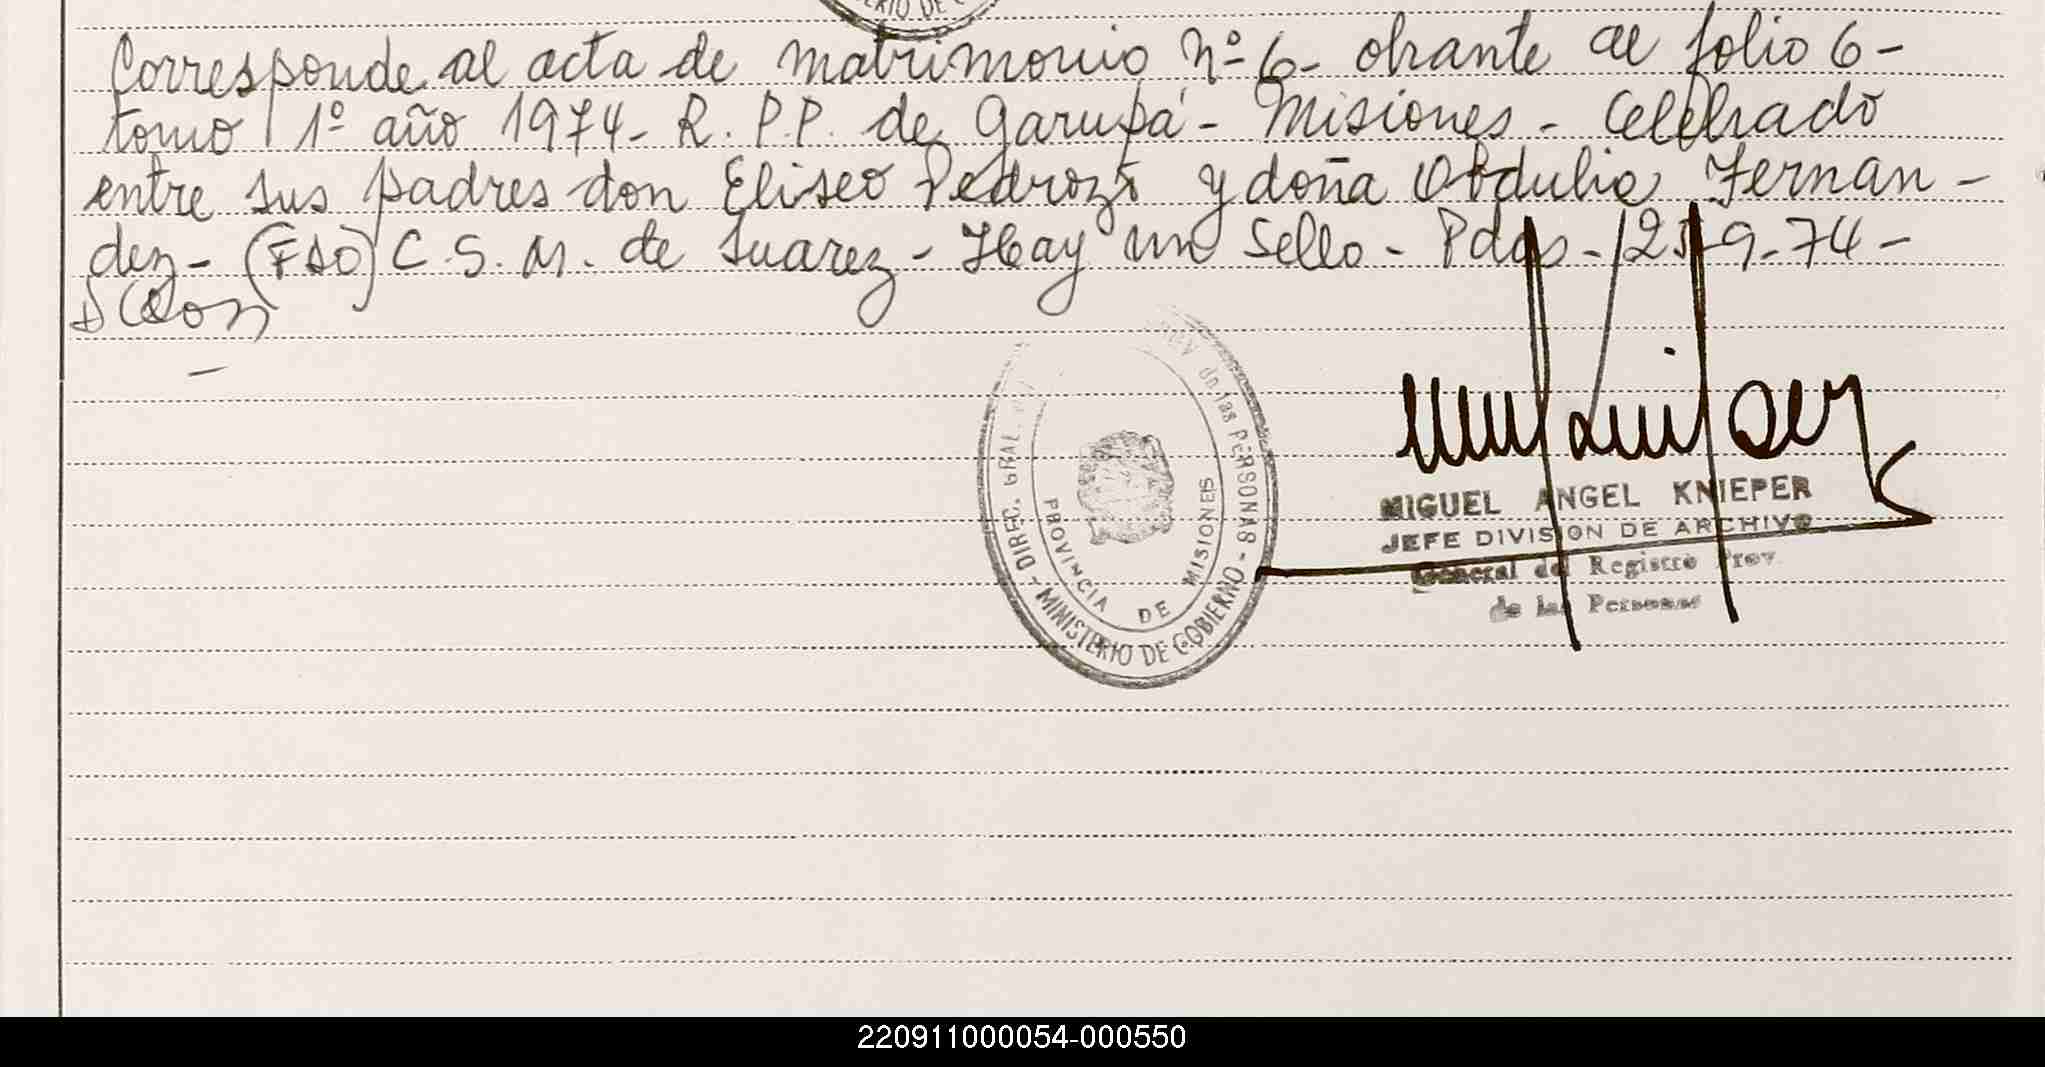 Corresponde al acta de matrimonio Nº 6- obrante al folio 6-
tomo 1º año 1974- R. P.P. de Garupá - Misiones - Celebrado
entre sus padres don Eliseo Pedrozo y doña Obdulia Fernan-
dez- (FDO) C. S. M. de Suarez - Hay un Sello - Pdas - 25-9-74-
DIREC. GRAL. de las PERSONAS - MINISTERIO DE GOBIERNO -
PROVINCIA DE MISIONES
MIGUEL ANGEL KNIEPER
JEFE DIVISION DE ARCHIVO
General del Registro Prov.
de las Personas
220911000054-000550